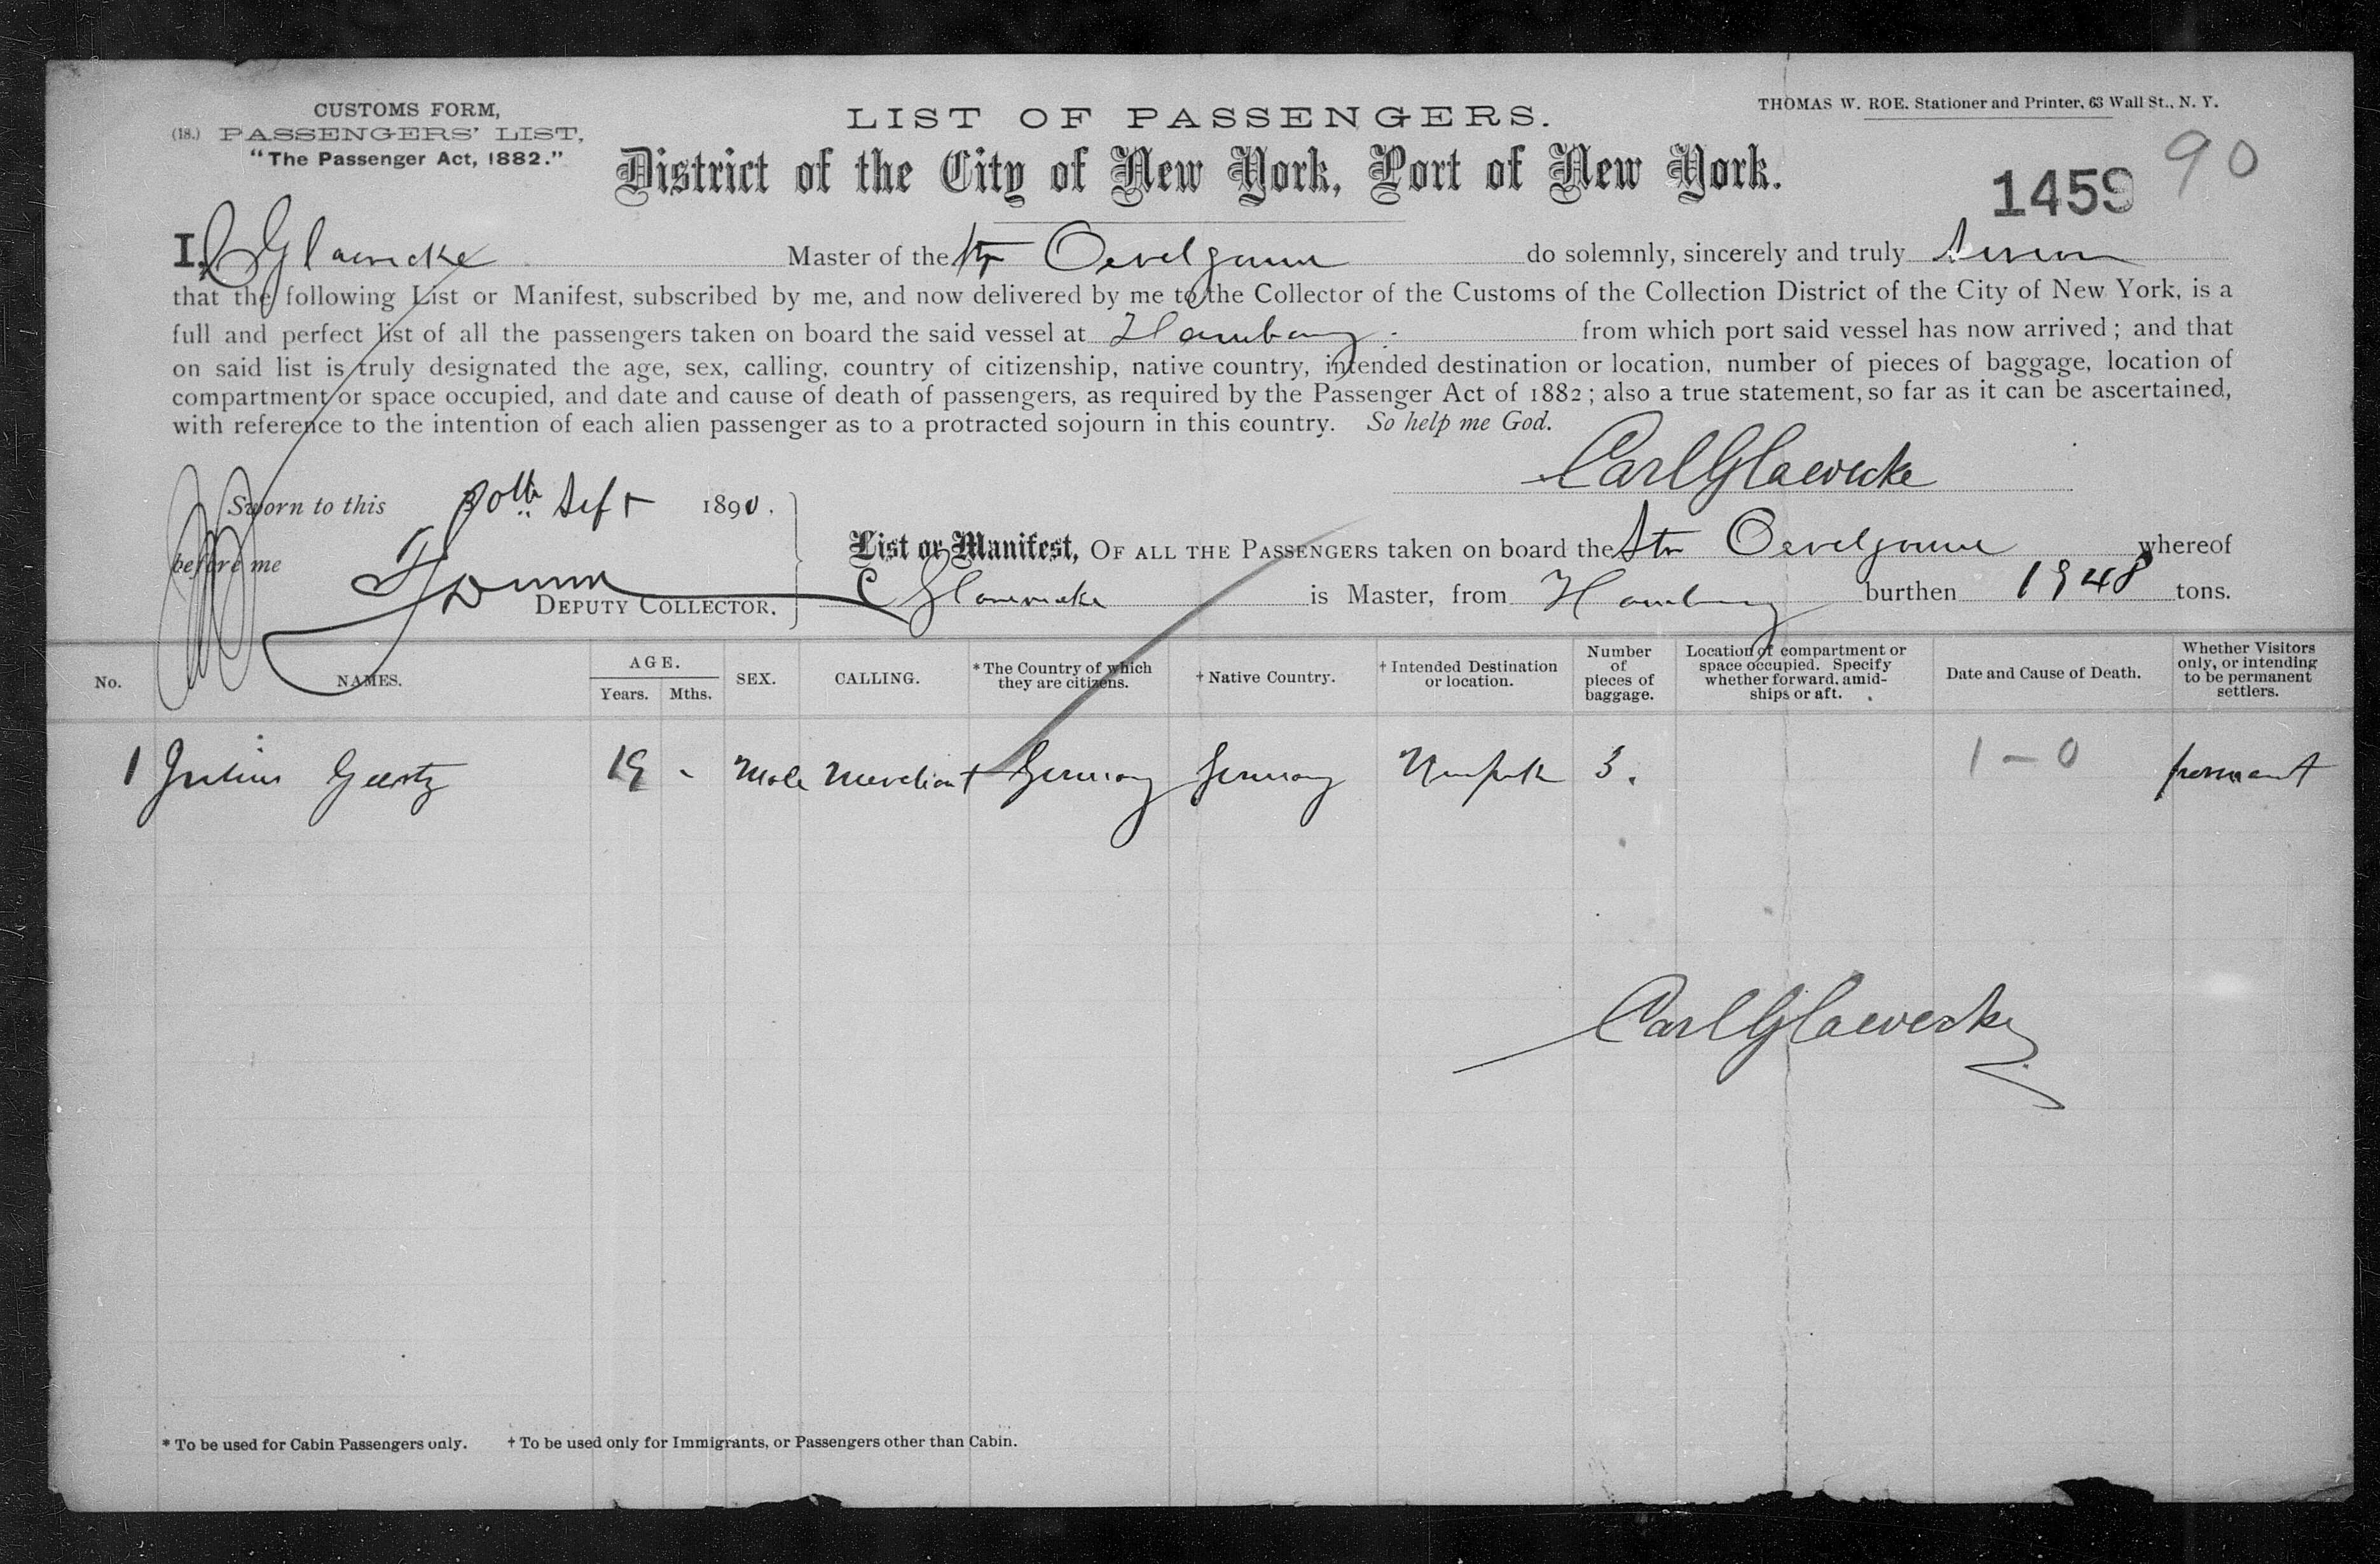 CUSTOMS FORM,
(18.) PASSENGERS' LIST,
"The Passenger Act, 1882."
LIST OF PASSENGERS.
THOMAS W. ROE. Stationer and Printer, 63 Wall St., N. Y.
District of the City of New York, Port of New York.
1459 90
I, C Glaevecke Master of the Str Oevelgonne do solemnly, sincerely and truly swear
that the following List or Manifest, subscribed by me, and now delivered by me to the Collector of the Customs of the Collection District of the City of New York, is a
full and perfect list of all the passengers taken on board the said vessel at Hamburg from which port said vessel has now arrived; and that
on said list is truly designated the age, sex, calling, country of citizenship, native country, intended destination or location, number of pieces of baggage, location of
compartment or space occupied, and date and cause of death of passengers, as required by the Passenger Act of 1882; also a true statement, so far as it can be ascertained,
with reference to the intention of each alien passenger as to a protracted sojourn in this country. So help me God.
Carl Glaevecke
Sworn to this 30th Sept 1890.
before me
DEPUTY COLLECTOR.
List or Manifest, OF ALL THE PASSENGERS taken on board the Str Oevelgonne whereof
C Glaevecke is Master, from Hamburg burthen 1948 tons.
No. NAMES. AGE. Years. Mths. SEX. CALLING. *The Country of which they are citizens. †Native Country. †Intended Destination or location. Number of pieces of baggage. Location of compartment or space occupied. Specify whether forward, amidships or aft. Date and Cause of Death. Whether Visitors only, or intending to be permanent settlers.
1 Julius Geertz 19 - Male Merchant Germany Germany 3. 1 - 0 permanent
Carl Glaevecke
* To be used for Cabin Passengers only. † To be used only for Immigrants, or Passengers other than Cabin.